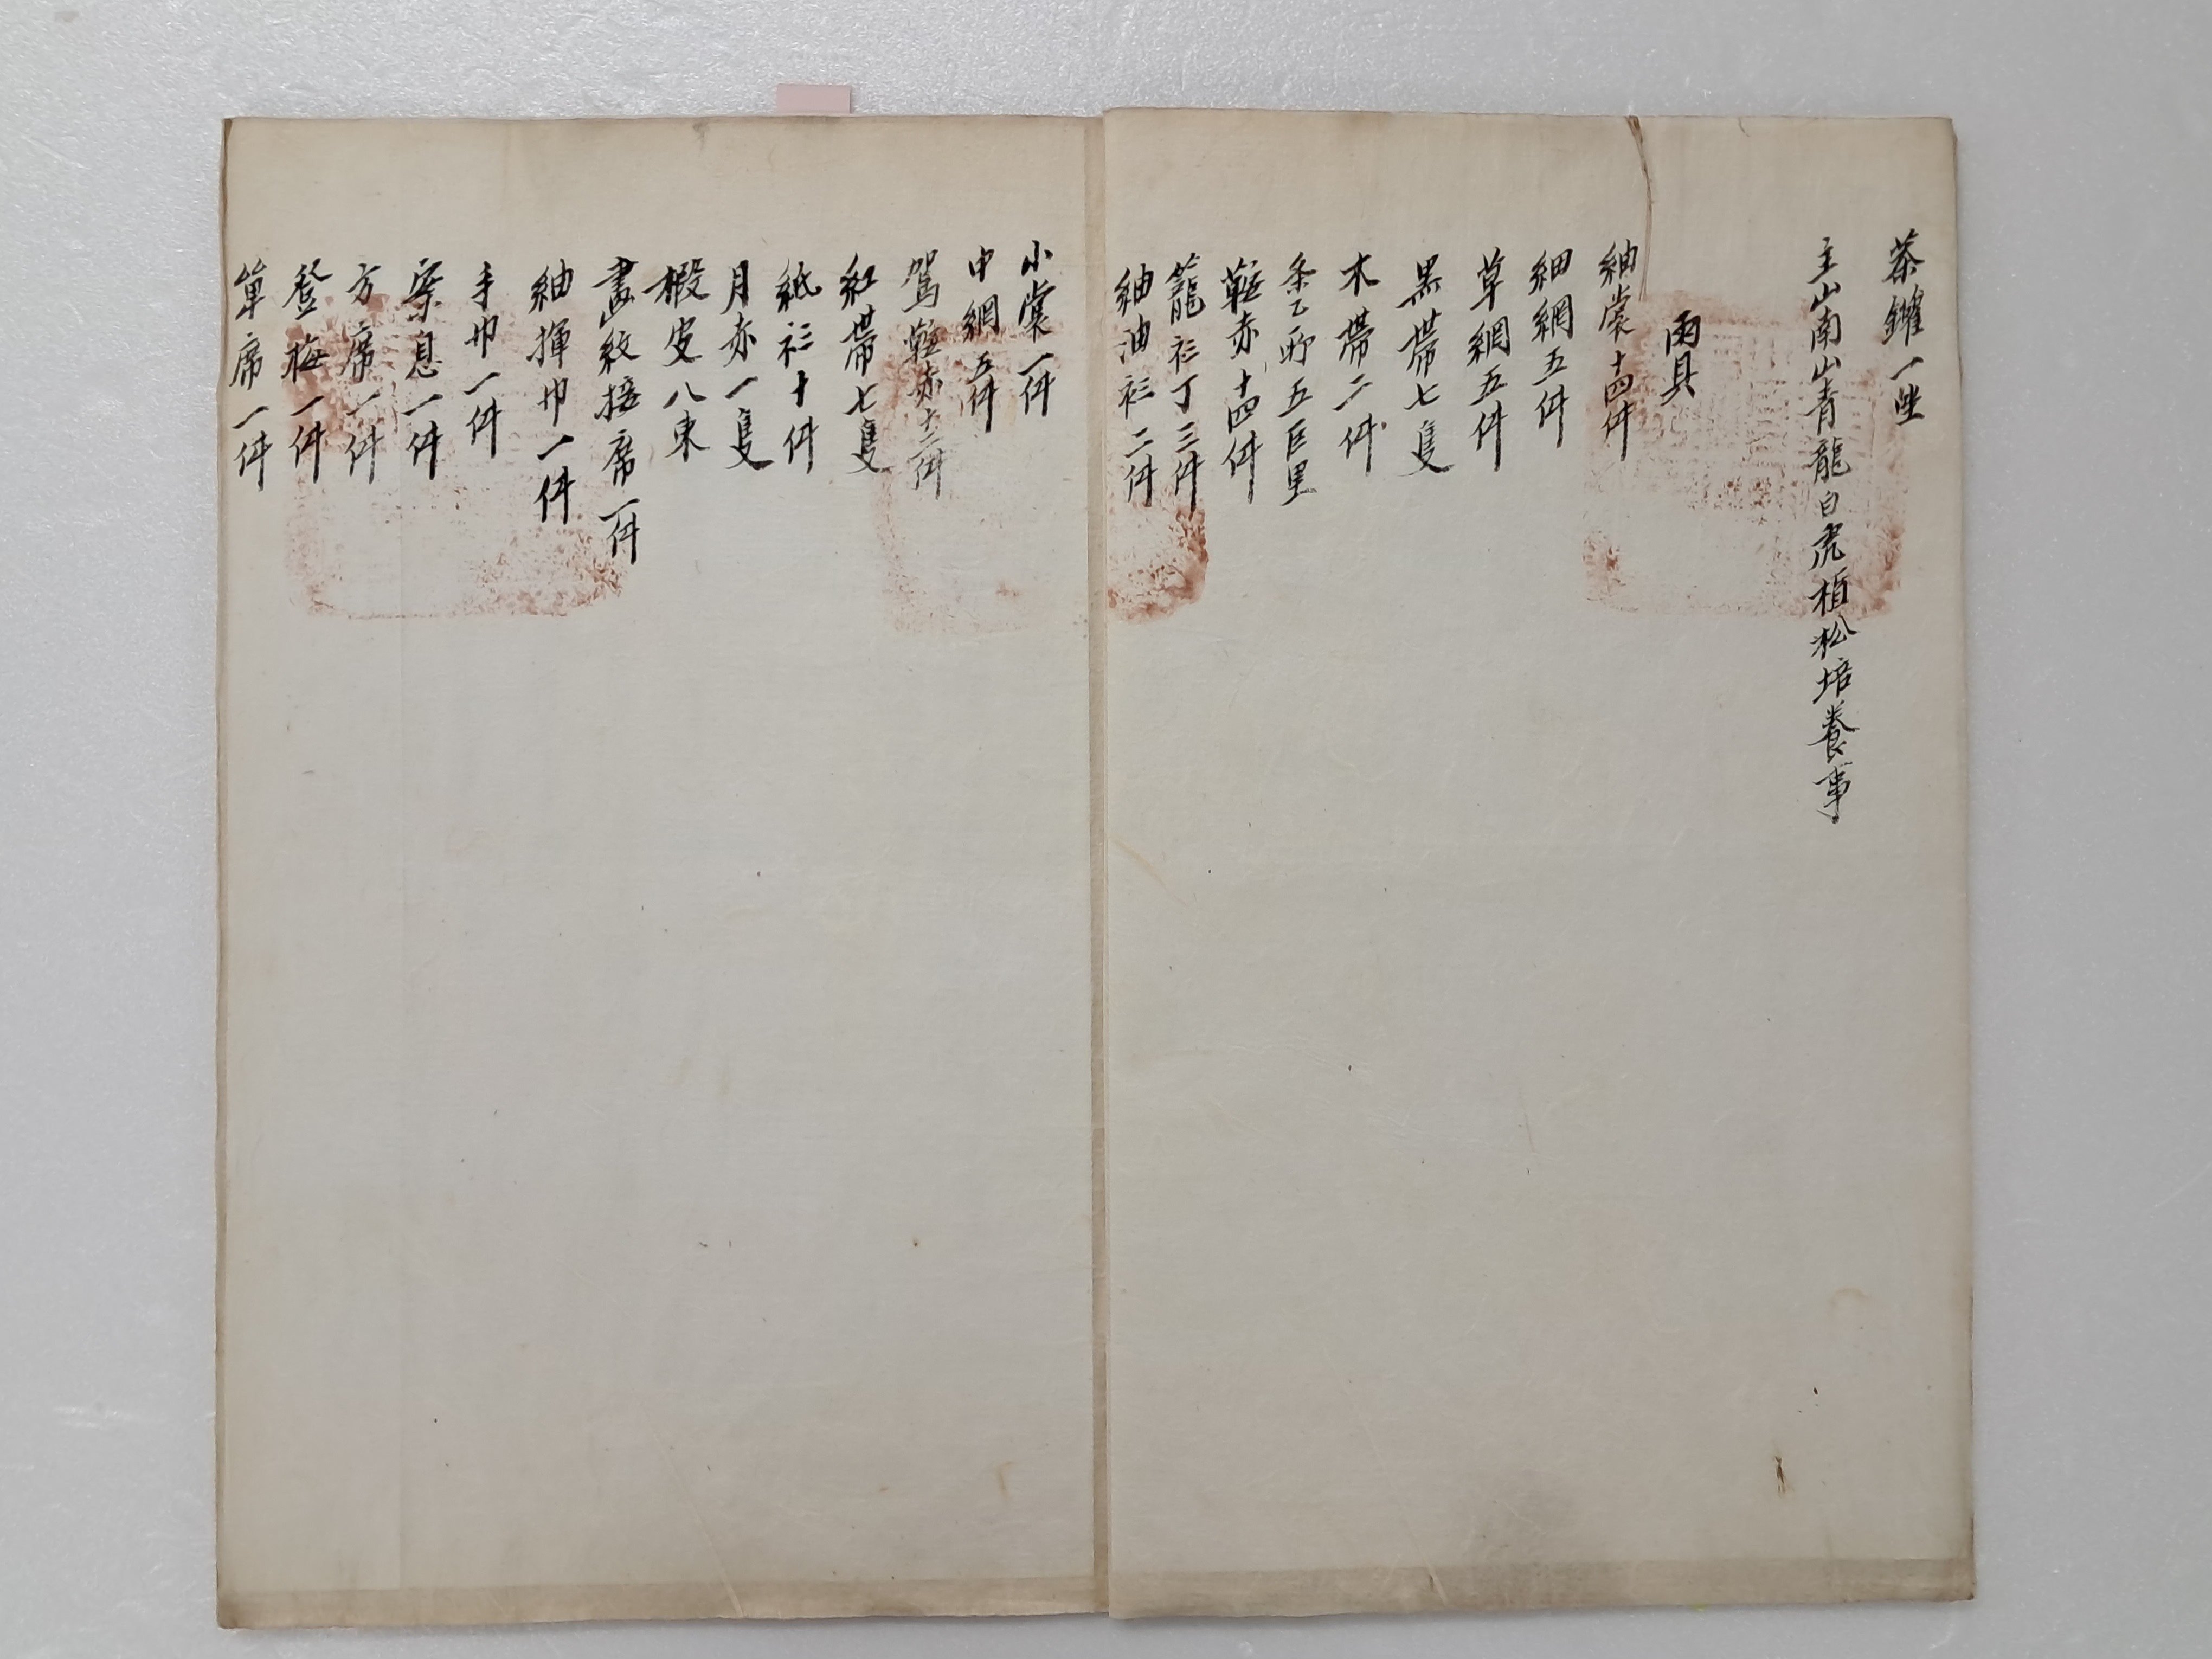 茶鑵一坐
主山南山青龍白虎栢松培養事
雨具
紬裳十四件
細網五件
草網五件
黑帶七隻
木帶二件
条乙所五巨里
鞋赤十四件
籠衫丁三件
紬油衫二件
小裳一件
中網五件
駕鞋赤十二件
紅帶七隻
紙衫十件
月赤一隻
椴皮八束
畵紋接席一件
紬揮巾一件
手巾一件
案息一件
方席一件
登梅一件
單席一件